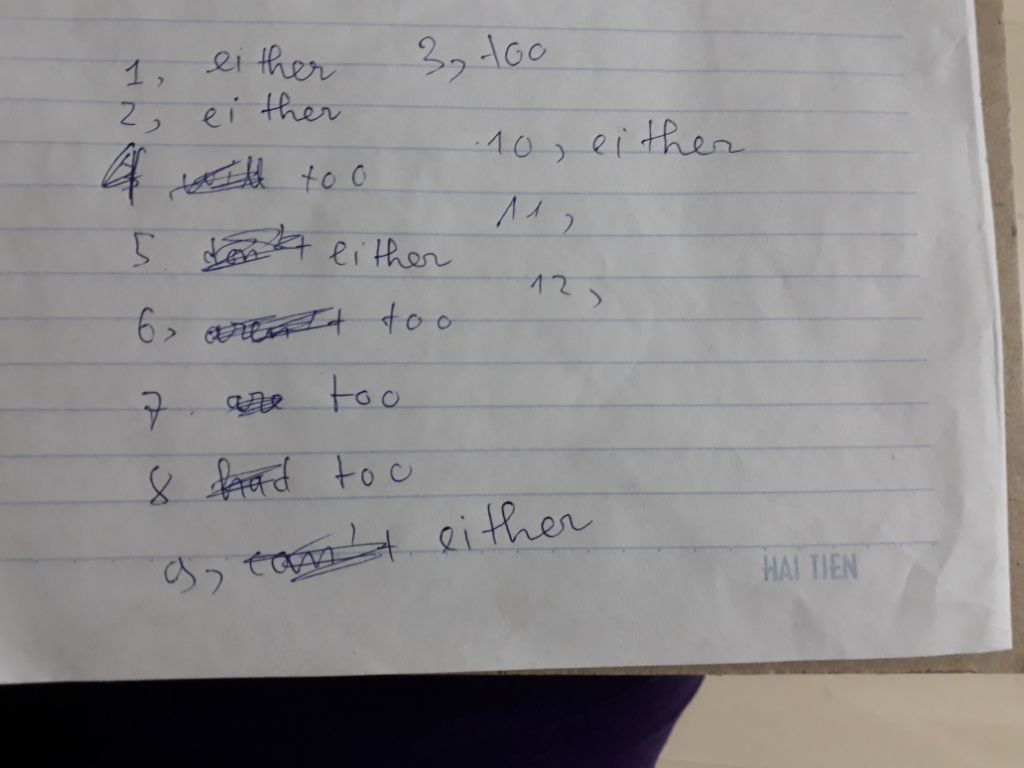 1, either 3, too
2, either
10, either
4 too
11,
5 don't either
12,
6, aren't too
7. are too
8 had too
9, can't either
HAI TIEN